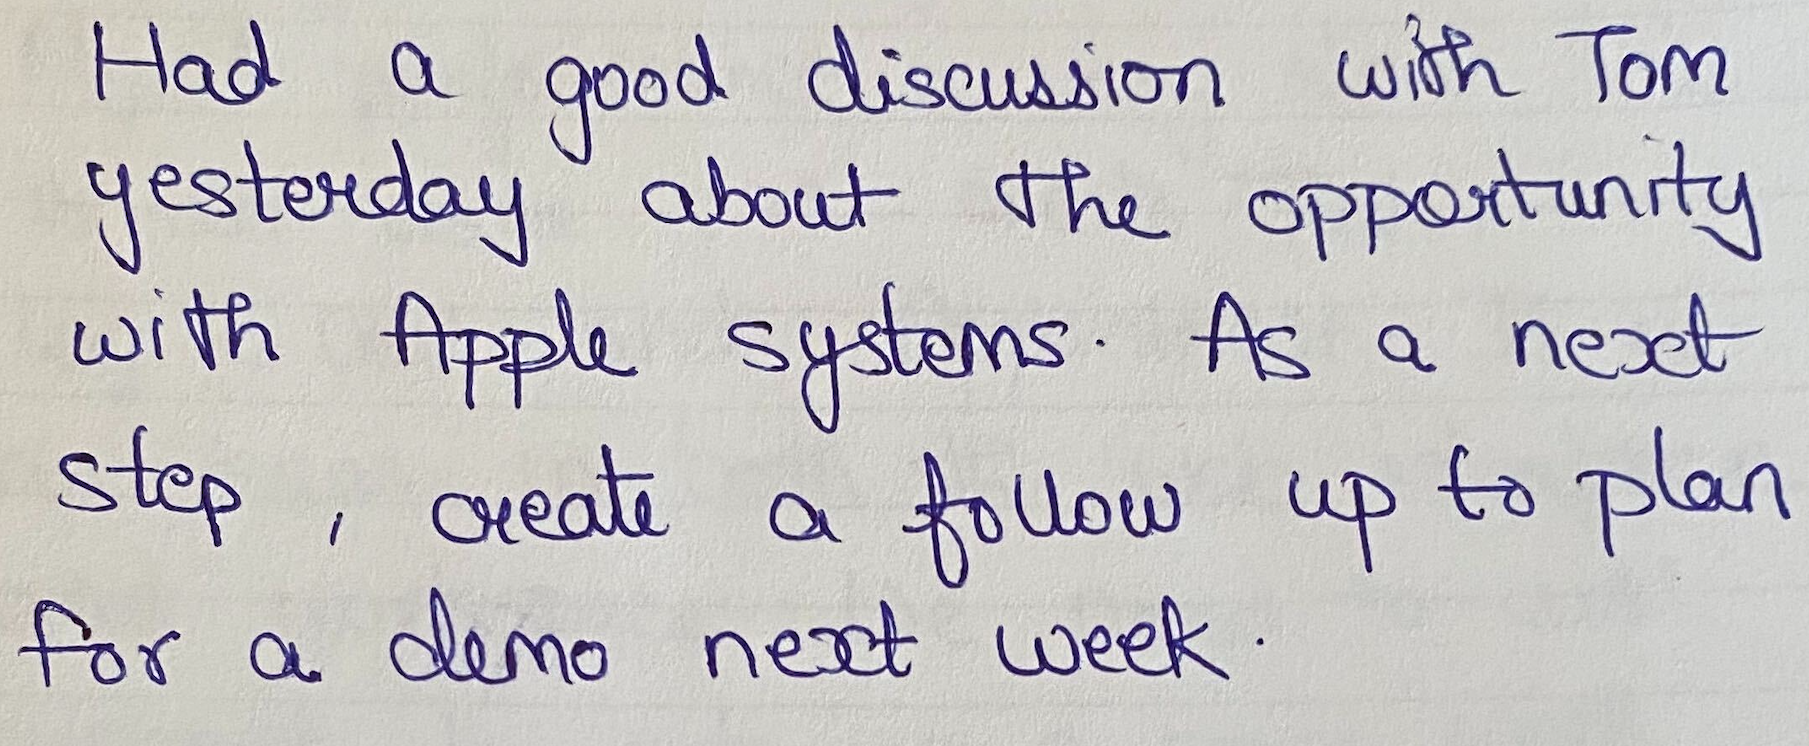 Had a good discussion with Tom
yesterday about the opportunity
with Apple systems. As a next
step, create a follow up to plan
for a demo next week.